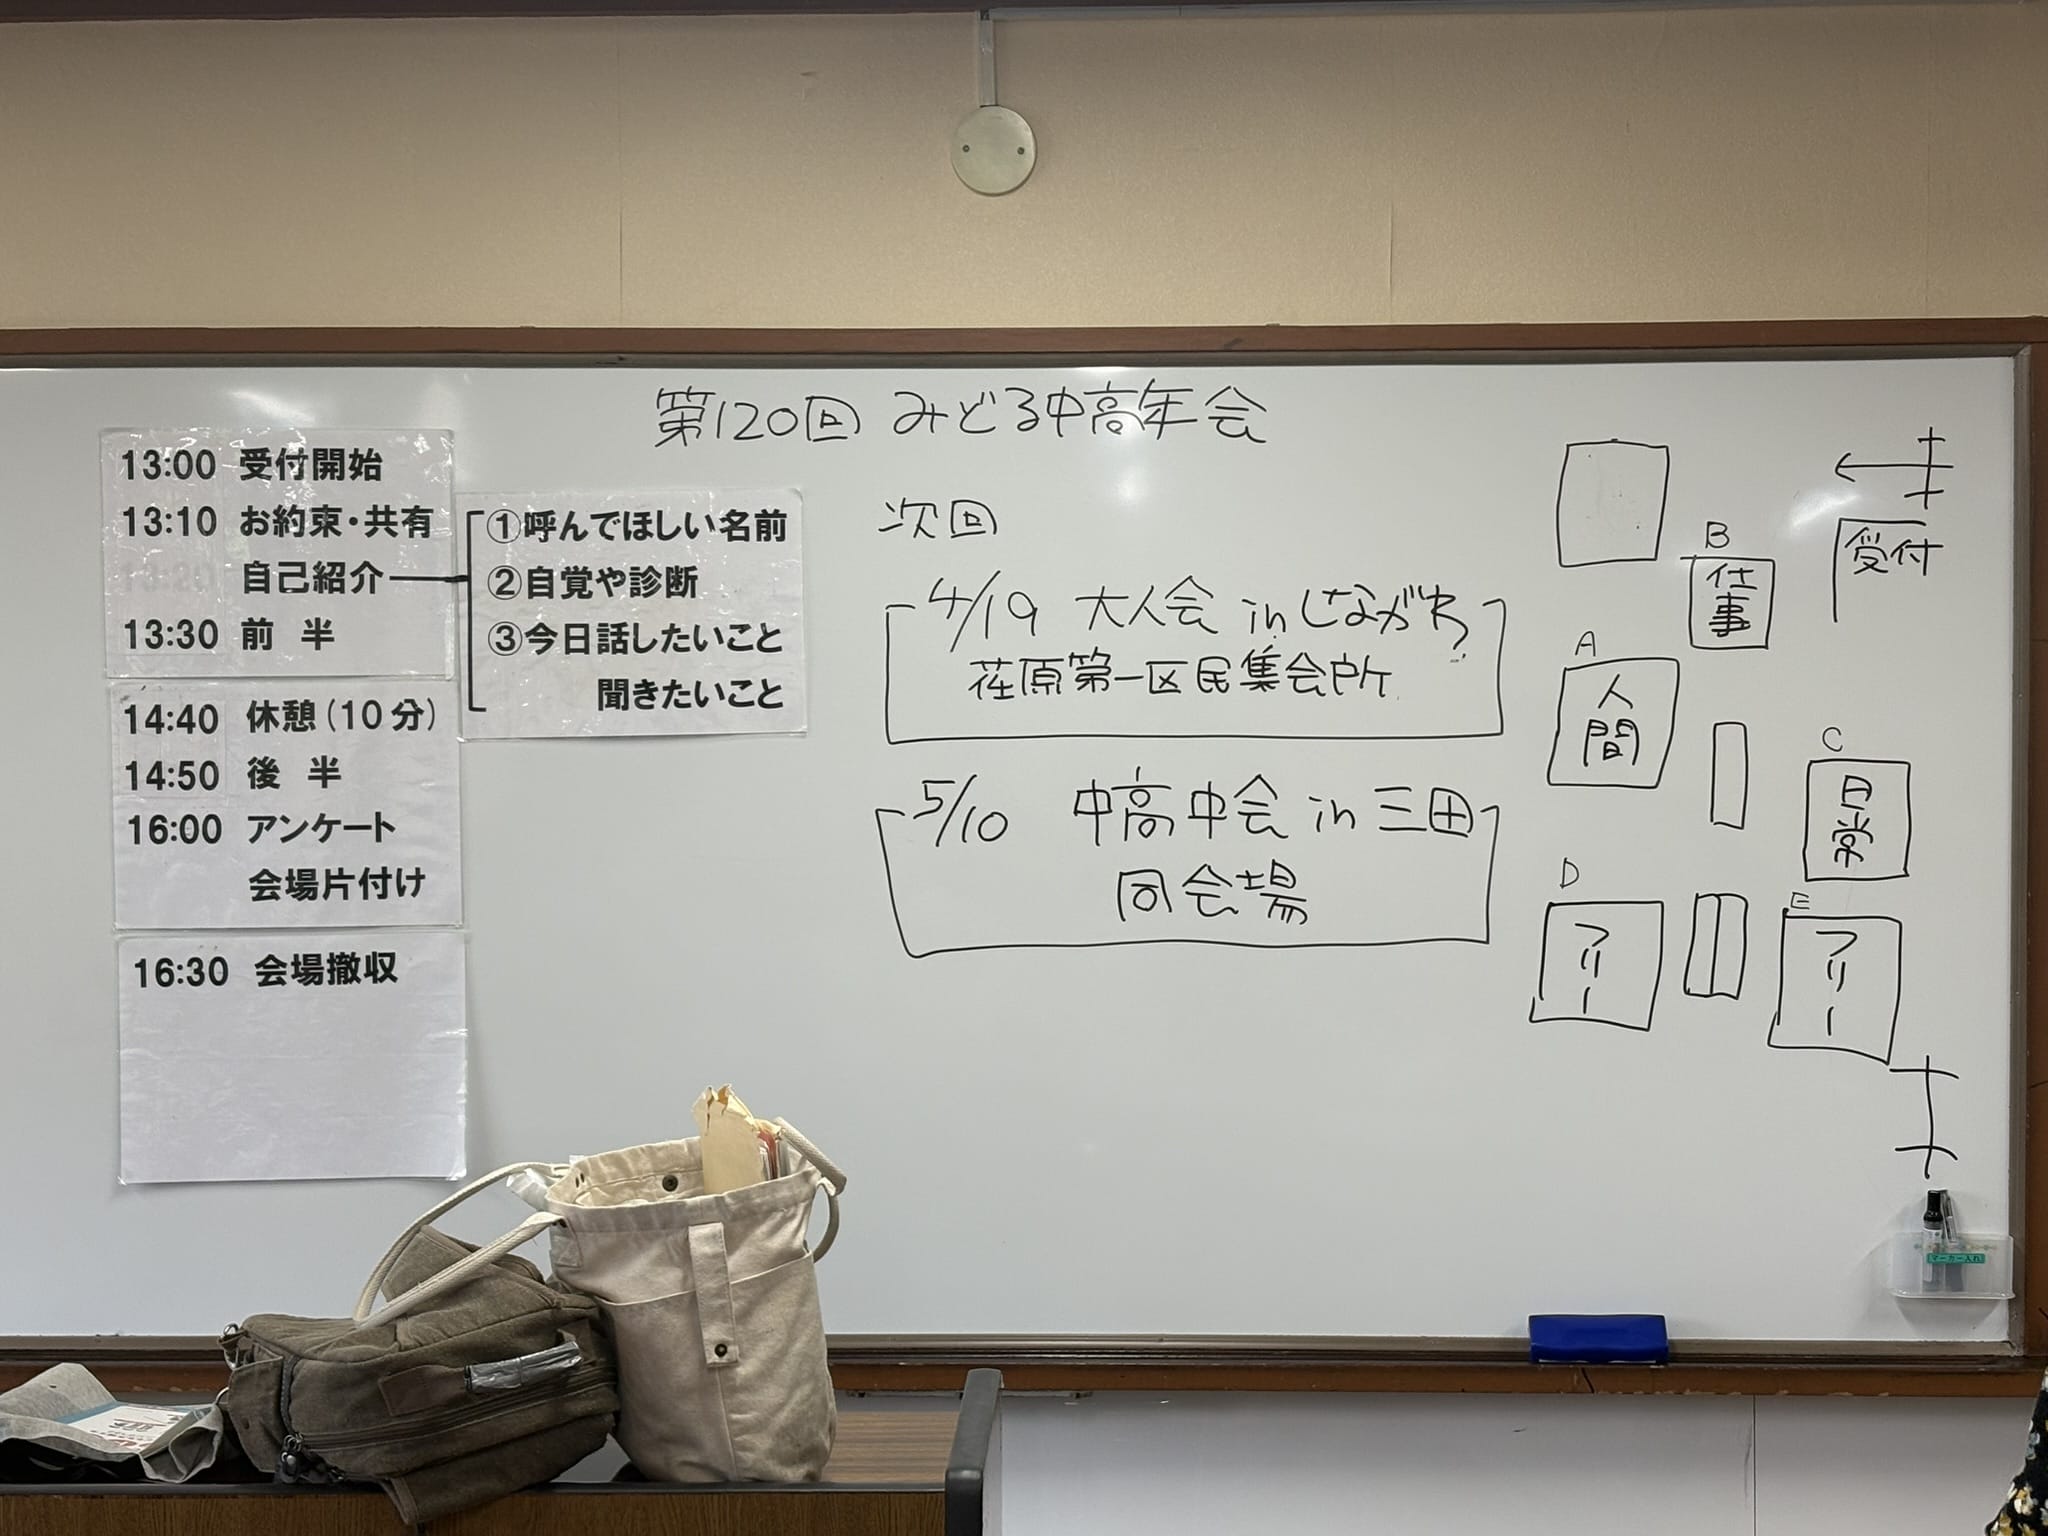 第120回 みどる中高年会
13:00 受付開始
13:10 お約束・共有
自己紹介
13:30 前 半
14:40 休憩(10分)
14:50 後 半
16:00 アンケート
会場片付け
16:30 会場撤収
①呼んでほしい名前
②自覚や診断
③今日話したいこと
聞きたいこと
次回
4/19 大人会 in しながわ
荏原第一区民集会所
5/10 中高中会 in 三田
同会場
受付
B
仕事
A
人間
C
日常
D
フリー
E
フリー
マーカー入れ